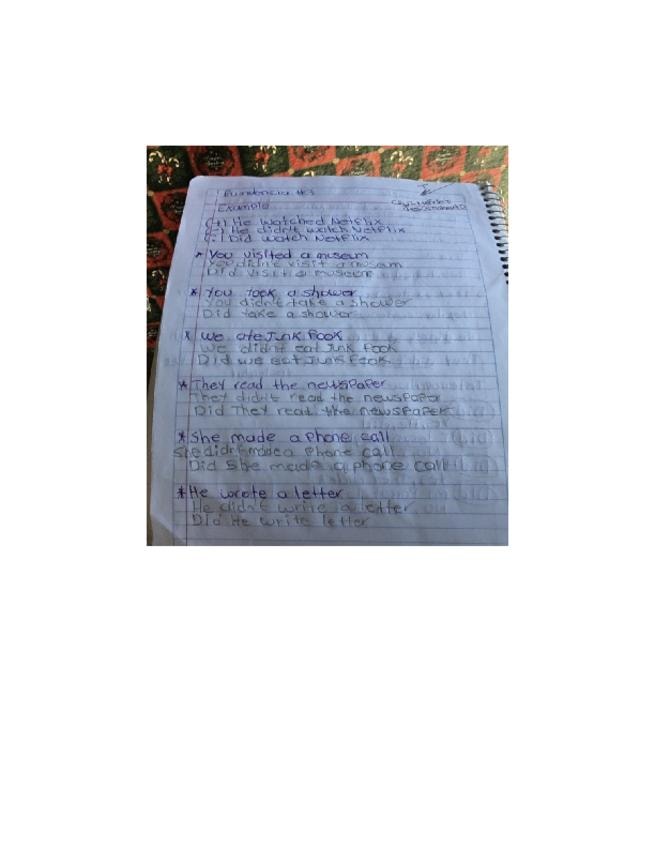 Example
(+) He watched Netflix
(-) He didn't watch Netflix
(?) Did watch Netflix
* You visited a museum
You didn't visit a museum
Did visit a museum
* You took a shower
You didn't take a shower
Did take a shower
* We ate Junk Fook
We didnt eat Junk Fook
Did we eat Junk Fook
* They read the newspaper
They didn't read the newspaper
Did They read the newspaper
* She made a phone call
She didn't made a Phone call
Did She made a phone call
* He wrote a letter
He didn't write a letter
Did He write letter